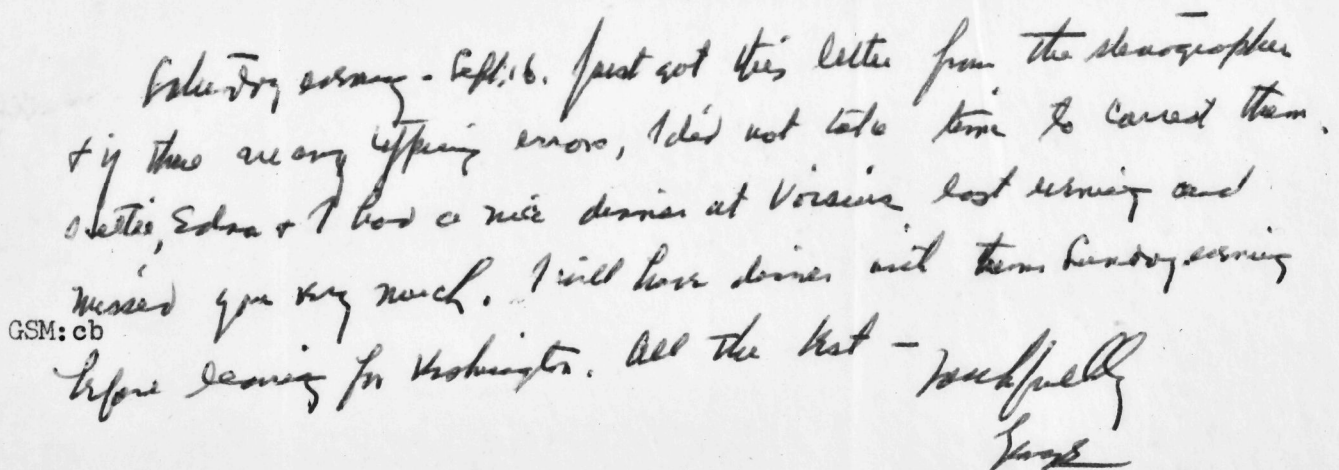 Saturday evening - Sept. 16. Just got this letter from the stenographer
+ if there are any typing errors, I did not take time to correct them.
Edna + I had a nice dinner at Voisins last evening and
missed you very much. I will have dinner with them Sunday evening
GSM:cb
before leaving for Washington. All the best -
George